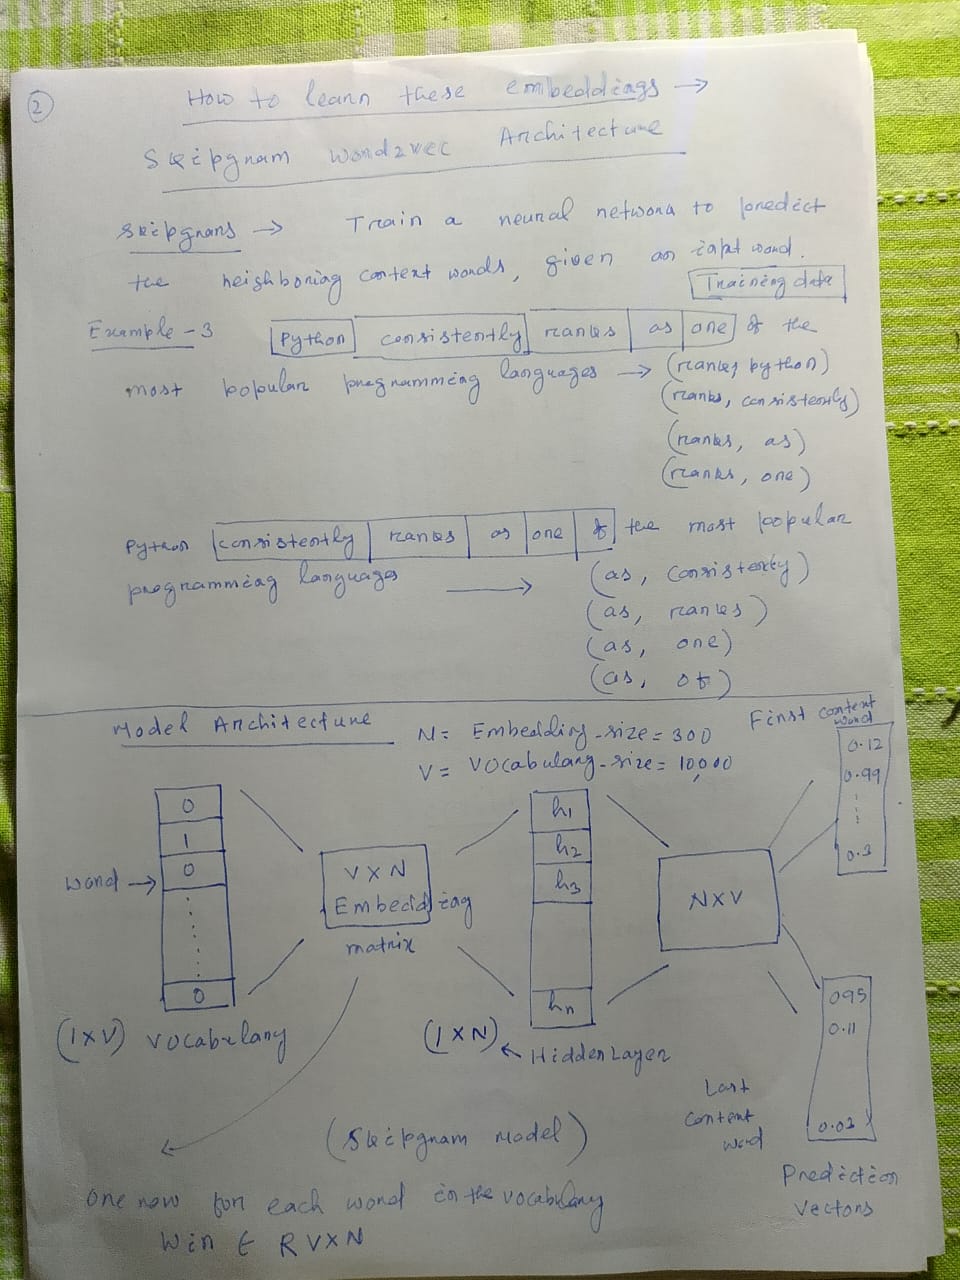 2
How to learn these embeddings →
Skipgram Word2vec Architecture
Skipgrams → Train a neural network to predict
the neighboring context words, given an input word.
Training data
Example - 3 Python consistently ranks as one of the
most popular programming languages → (ranks, python)
(ranks, consistently)
(ranks, as)
(ranks, one)
Python consistently ranks as one of the most popular
programming languages → (as, consistently)
(as, ranks)
(as, one)
(as, of)
Model Architecture
N = Embedding-size = 300
V = Vocabulary-size = 10,000
First context
word
0.12
0.99
0.3
0
1
0
0
word →
V X N
Embedding
matrix
h1
h2
h3
hn
N X V
(1 X V) Vocabulary
(1 X N) ← Hidden Layer
095
0.11
0.03
Last
context
word
(Skipgram Model)
Prediction
vectors
one row for each word in the vocabulary
Win E R V X N